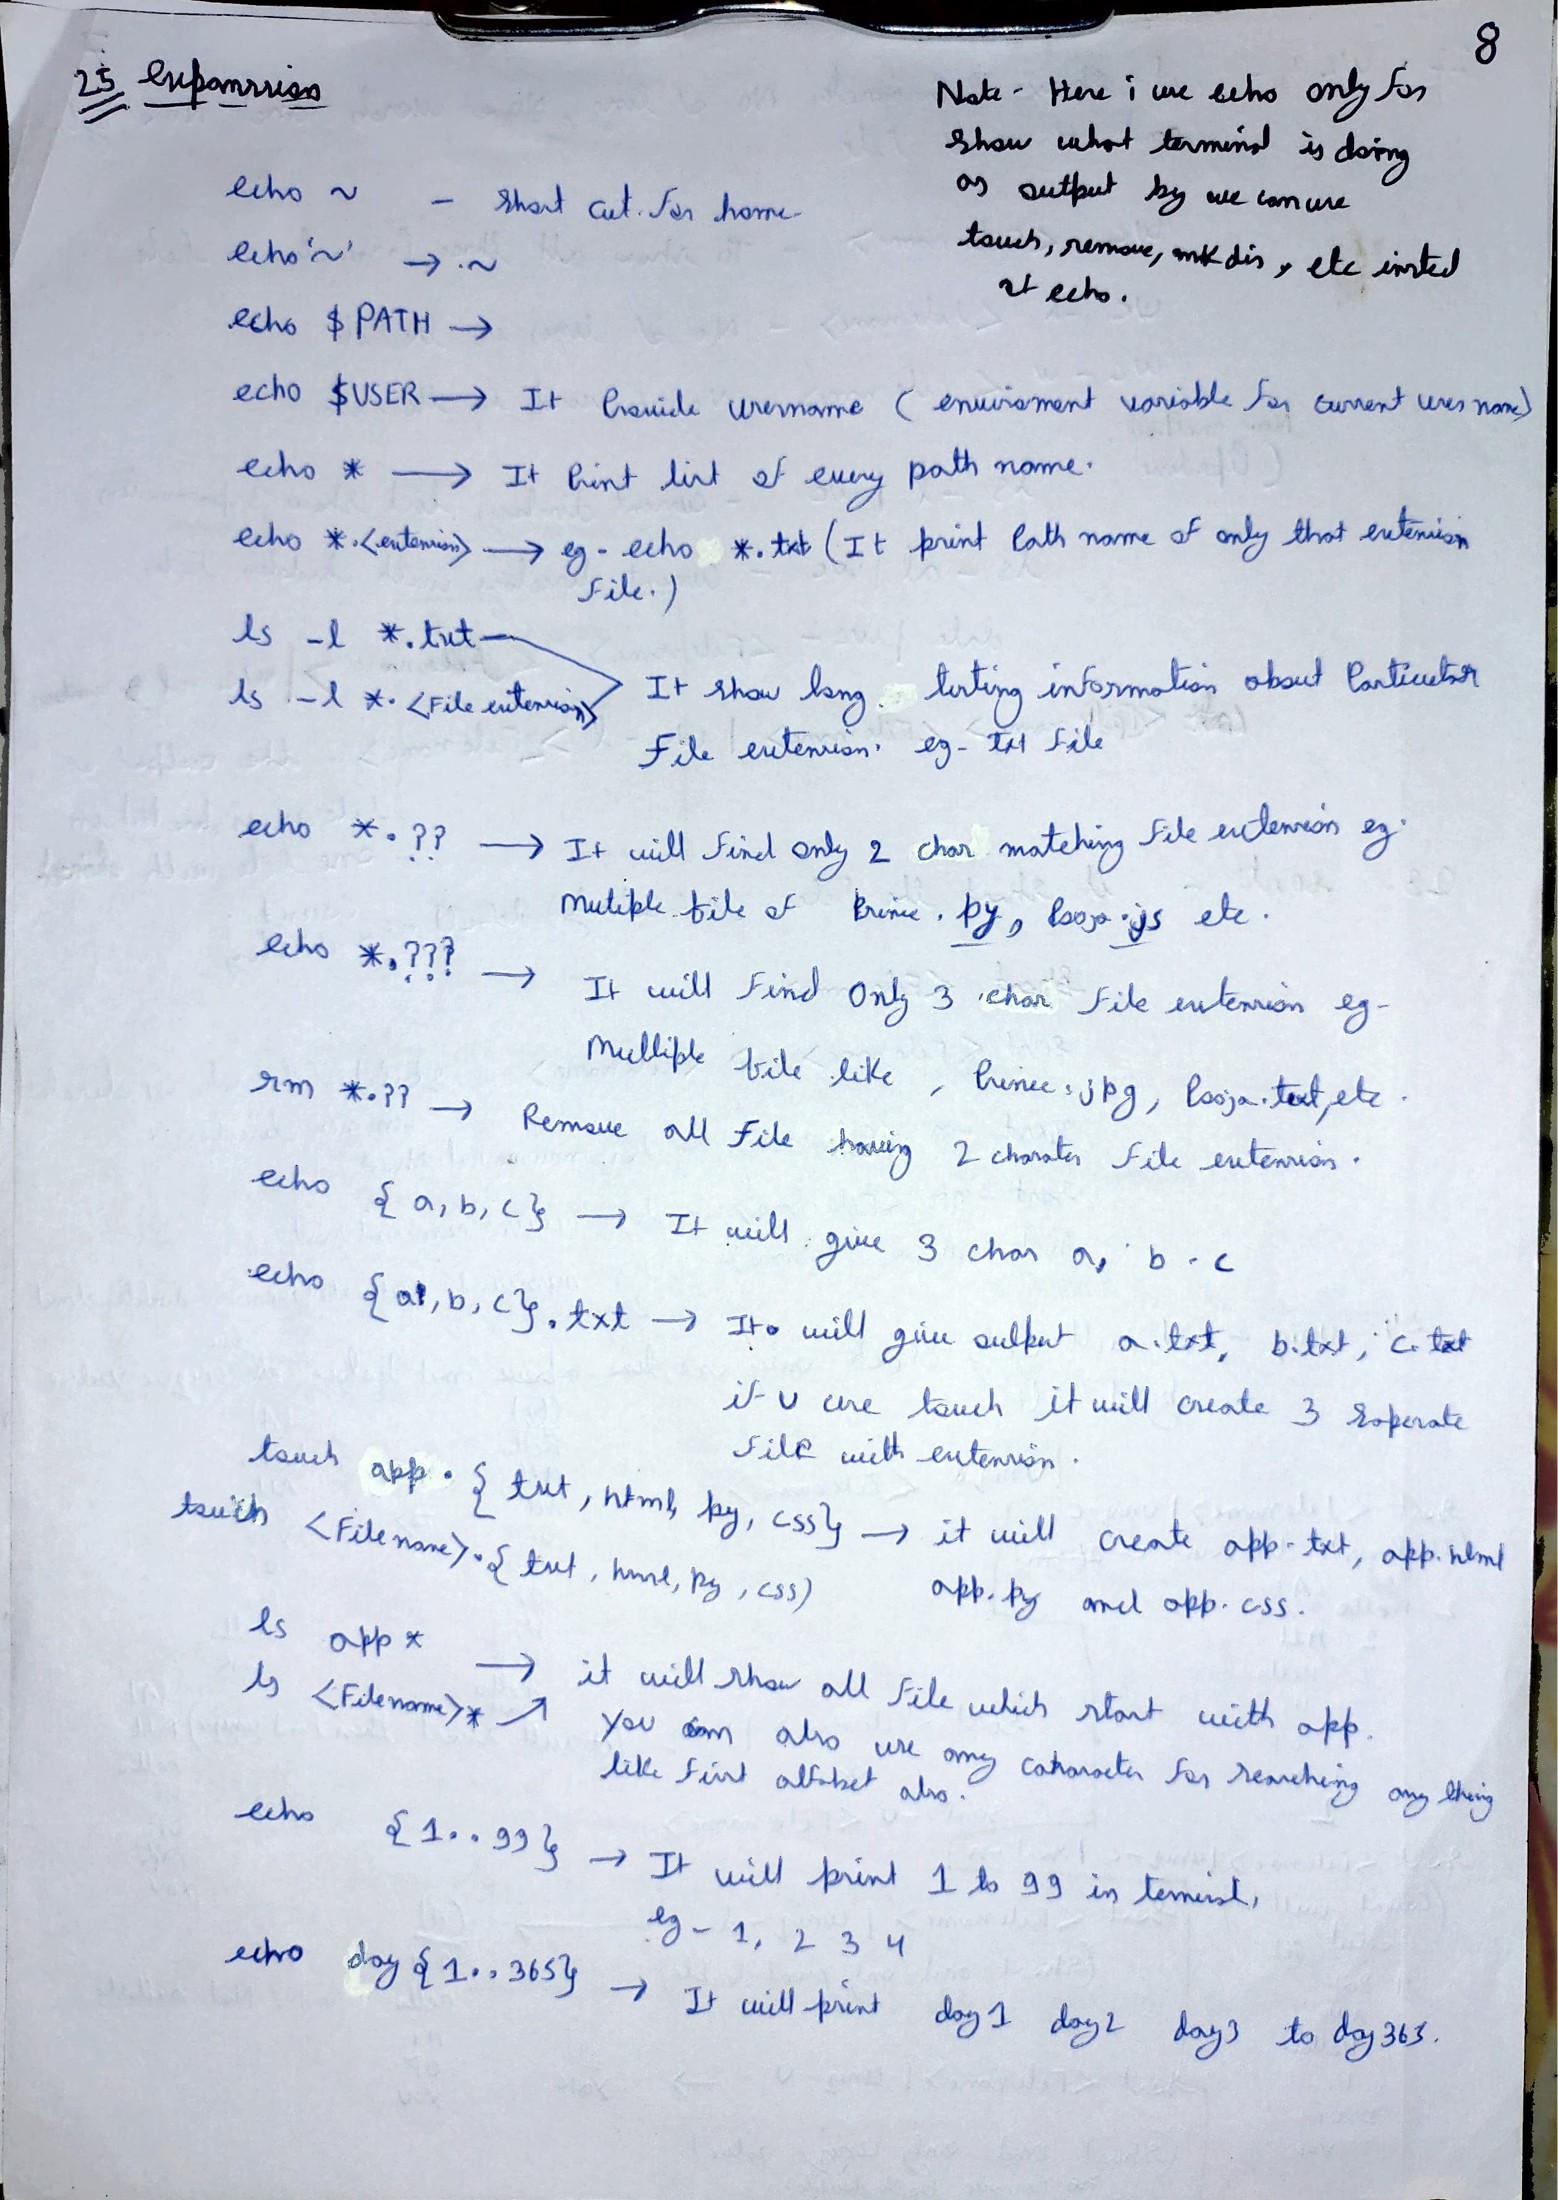 8
25 Expanssion
Note - Here i use echo only for
show what terminal is doing
as output by we can use
touch, remove, mkdir, etc insted
of echo.
echo ~ - short cut for home-
echo '~' → ~
echo $PATH →
echo $USER → It Provide username (enviroment variable for current user name)
echo * → It Print list of every path name.
echo *.<extension> → eg - echo *.txt (It print Path name of only that extension
file.)
ls -l *.txt
ls -l *.<File extension>
It show long listing information about Particular
File extension. eg- txt file
echo *.?? → It will find only 2 char matching file extension eg.
Mutiple file of Prince.py, Pooja.js etc.
echo *.??? → It will find Only 3 char file extension eg-
Multiple file like, Prince.jpg, Pooja.text, etc.
rm *.?? → Remove all File having 2 charater file extension.
echo {a, b, c} → It will give 3 char a, b . c
echo {a, b, c}.txt → It will give output a.txt, b.txt, c.txt
if U use touch it will create 3 Saperate
file with extension.
touch app.{txt, html, py, css} → it will create app.txt, app.html
touch <File name>.{txt, html, py, css) app.py and app.css.
ls app*
ls <Filename>* → it will show all file which start with app.
You can also use any catharacter for searching any thing
like first alfabet also.
echo {1..99} → It will print 1 to 99 in
eg - 1, 2 3 4
echo day{1..365} → It will print day1 day2 day3 to day365.